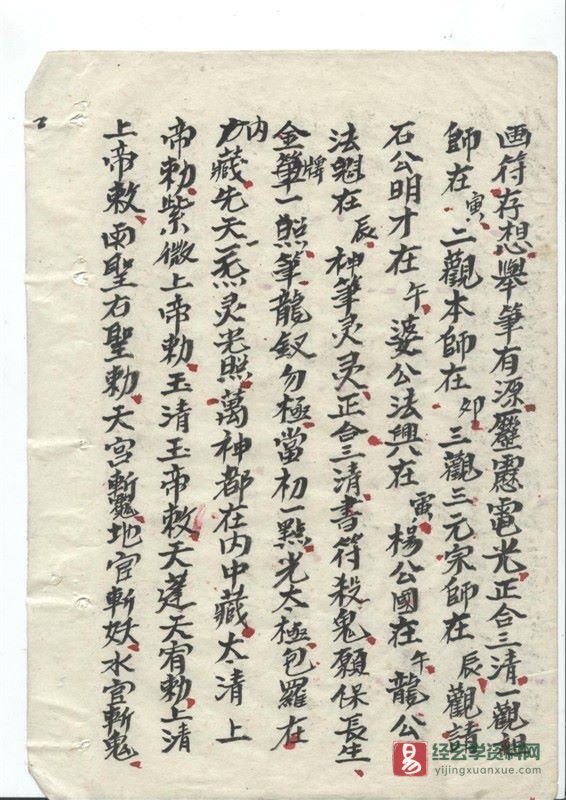 画符存想舉筆有源靂靂電光正合三清一觀祖
師在寅二觀本師在卯三觀三元宗師在辰觀請
石公明才在午婆公法興在寅楊公國在午龍公
法魁在辰神筆灵灵正合三清書符殺鬼願保長生
金筆一照筆龍釵勿極當初一點光太極包羅在
牌
方藏先天一炁灵光照萬神都在内中藏太清上
内
帝勅紫微上帝勅玉清玉帝敕天蓬天宥勅上清
上帝敕雨聖右聖勅天宫斬鬽地官斬妖水官斬鬼
易
经玄学资料网
yijingxuanxue.com